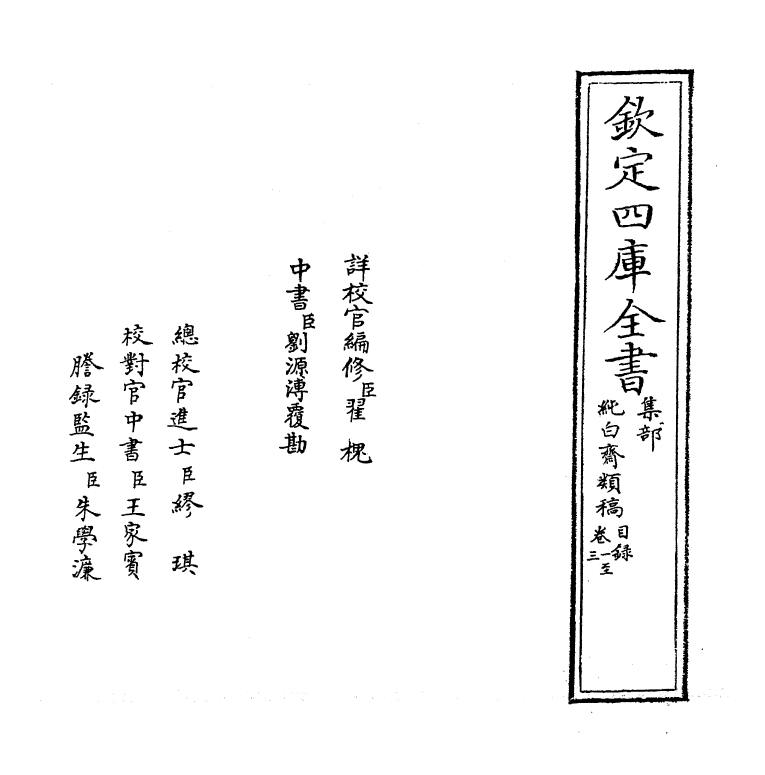 欽定四庫全書
集部
純白齋類稿 目録
卷一至
三
詳校官編修臣翟槐
中書臣劉源溥覆勘
總校官進士臣繆琪
校對官中書臣王家賓
謄録監生臣朱學濂